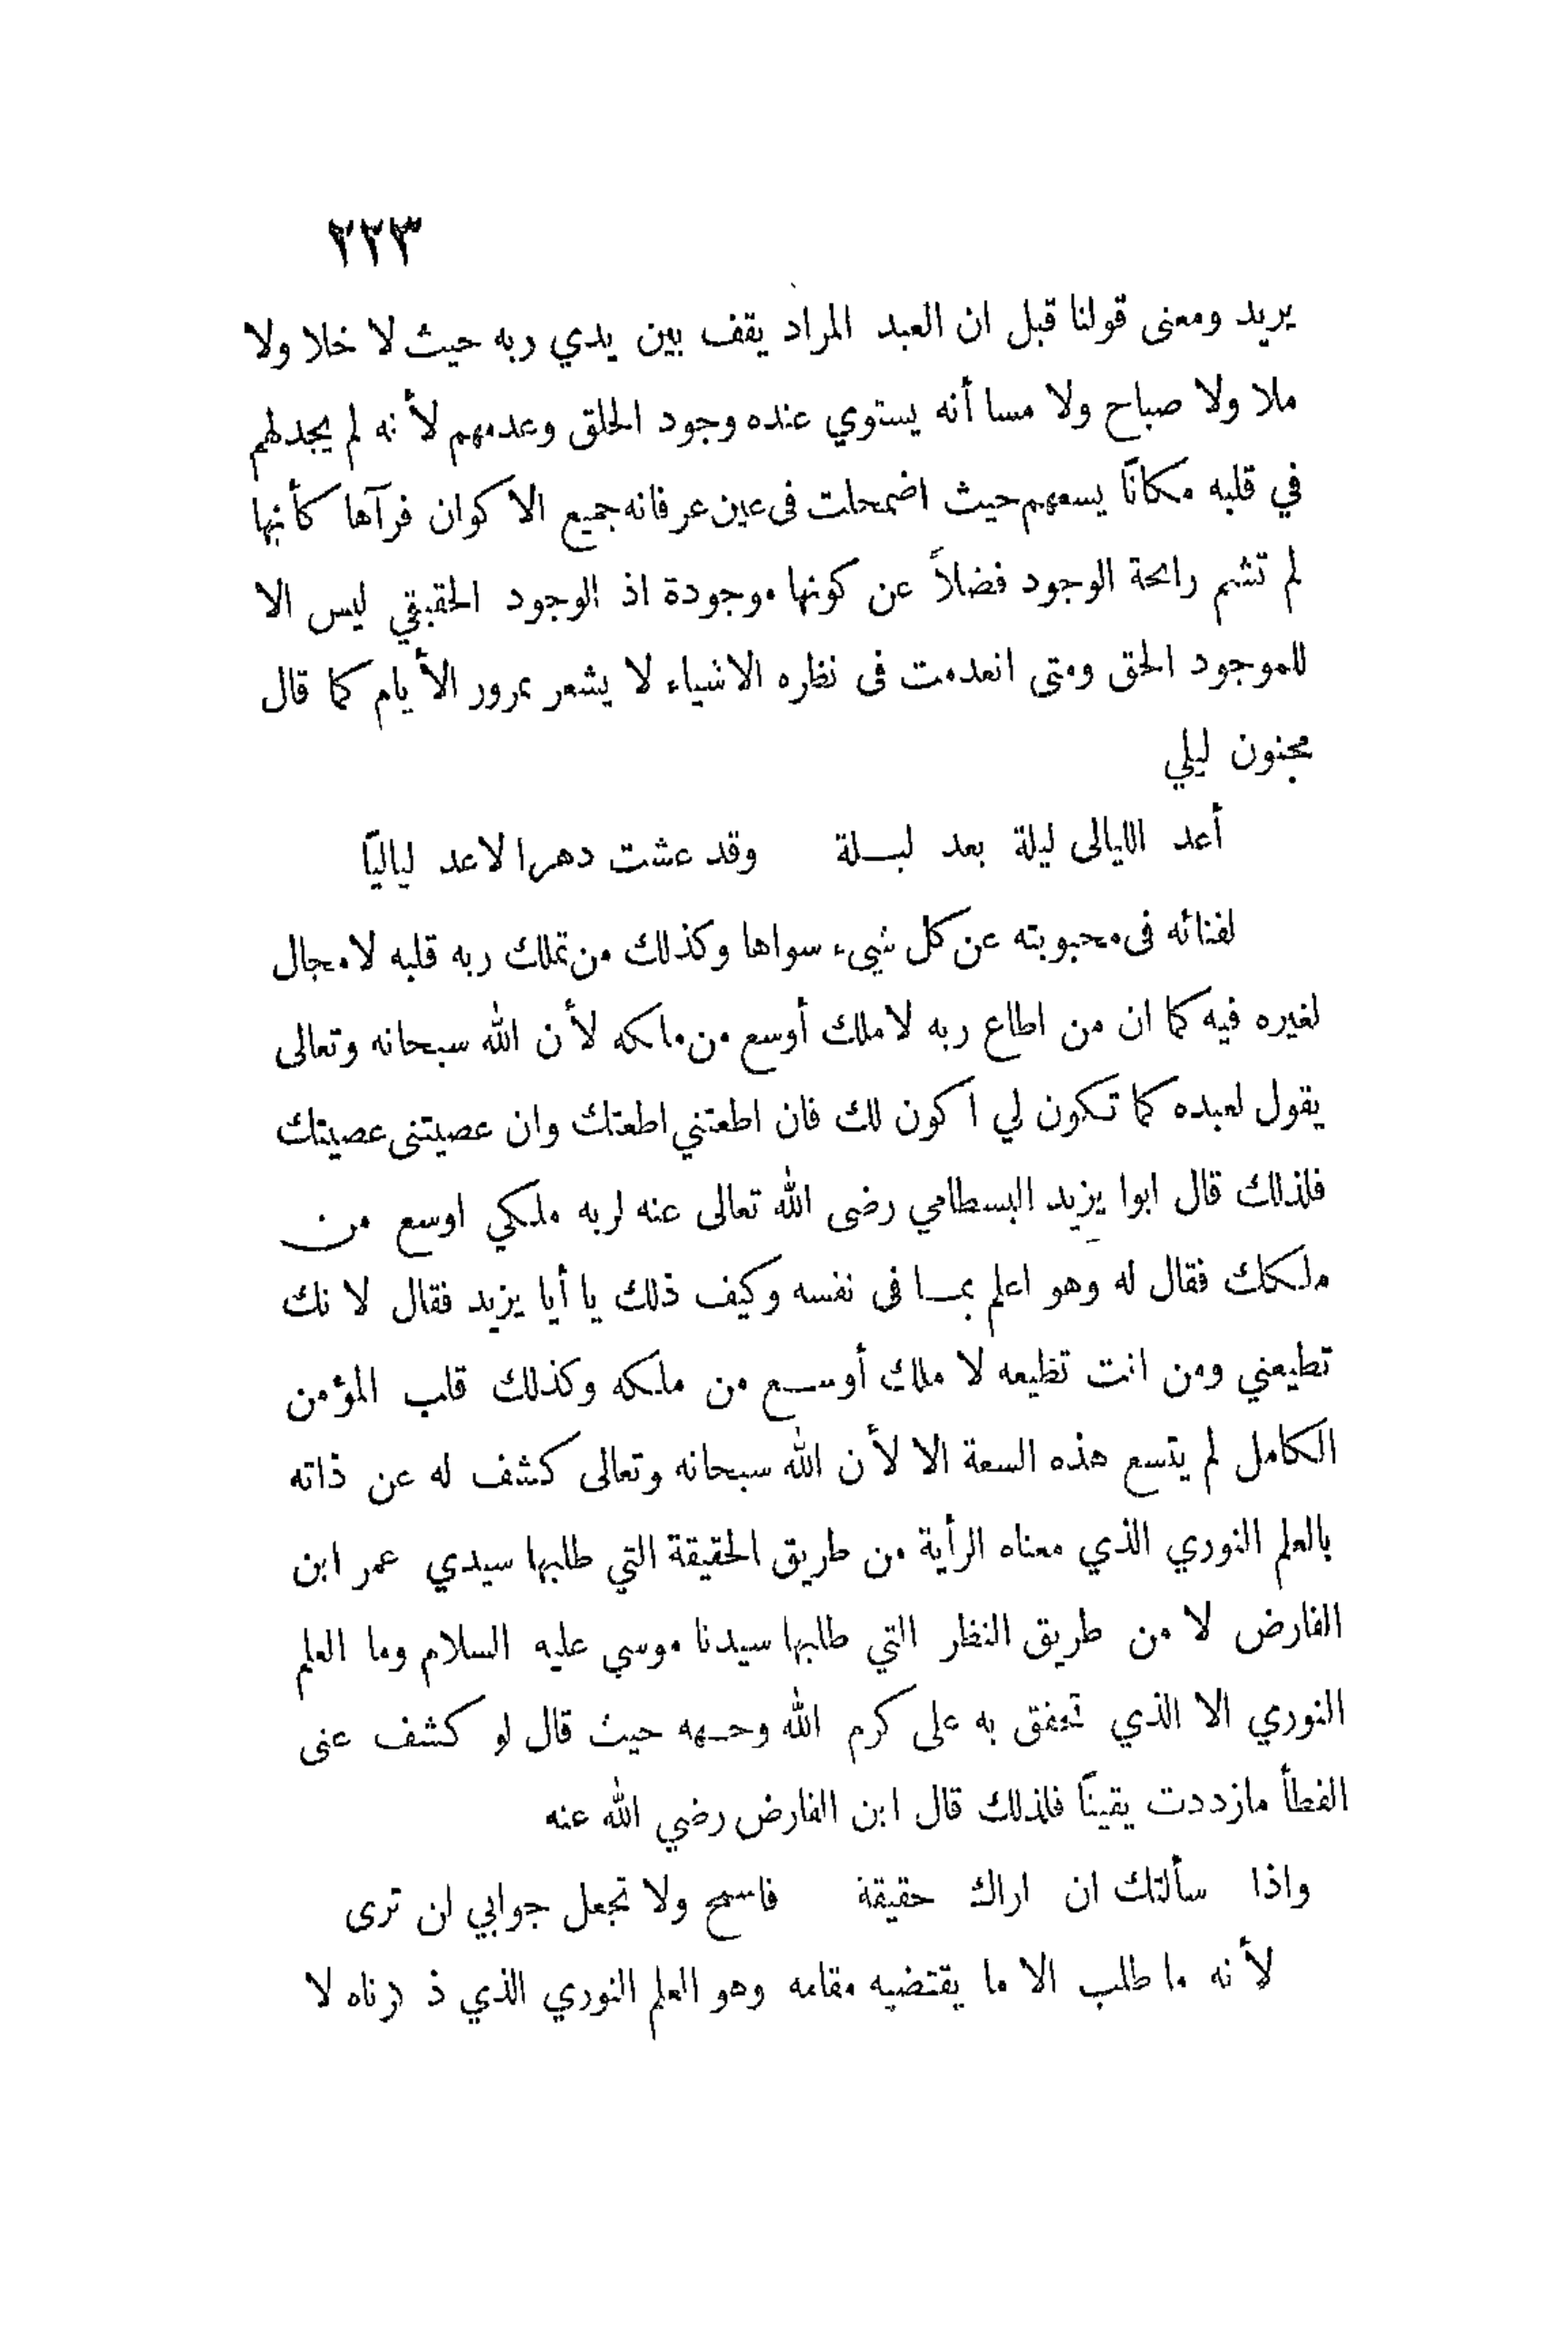 ٢٢٣
يريد ومعنى قولنا قبل ان العبد المراد يقف بين يدي ربه حيث لا خلا ولا
ملا ولا صباح ولا مسا أنه يستوي عنده وجود الخلق وعدمهم لأنه لم يجد لهم
في قلبه مكانًا يسعهم حيث اضمحلت فى عين عرفانه جميع الاكوان فرآها كأنها
لم تشم رائحة الوجود فضلاً عن كونها موجودة اذ الوجود الحقيقي ليس الا
للموجود الحق ومتى انعدمت فى نظره الاشياء لا يشعر بمرور الأيام كما قال
مجنون ليلي
أعد الليالى ليلة بعد ليـــلة وقد عشت دهرا لاعد لياليًا
لفنائه فى محبوبته عن كل شيء سواها وكذلك من تملك ربه قلبه لا مجال
لغيره فيه كما ان من اطاع ربه لا ملك أوسع من ملكه لأن الله سبحانه وتعالى
يقول لعبده كما تكون لي اكون لك فان اطعتني اطعتك وان عصيتنى عصيتك
فلذلك قال ابوا يزيد البسطامي رضى الله تعالى عنه لربه ملكي اوسع من
ملكك فقال له وهو اعلم بمـا فى نفسه وكيف ذلك يا أيا يزيد فقال لانك
تطيعني ومن انت تظيعه لا ملك أوســع من ملكه وكذلك قلب المؤمن
الكامل لم يتسع هذه السعة الا لأن الله سبحانه وتعالى كشف له عن ذاته
بالعلم النوري الذي معناه الرأية من طريق الحقيقة التي طلبها سيدي عمر ابن
الفارض لا من طريق النظر التي طلبها سيدنا موسي عليه السلام وما العلم
النوري الا الذي تحقق به على كرم الله وجـهه حيث قال لو كشف عنى
الغطأ مازددت يقينًا فلذلك قال ابن الفارض رضي الله عنه
واذا سألتك ان اراك حقيقة فاسمح ولا تجعل جوابي لن ترى
لأنه ما طلب الا ما يقتضيه مقامه وهو العلم النوري الذي ذكرناه لا